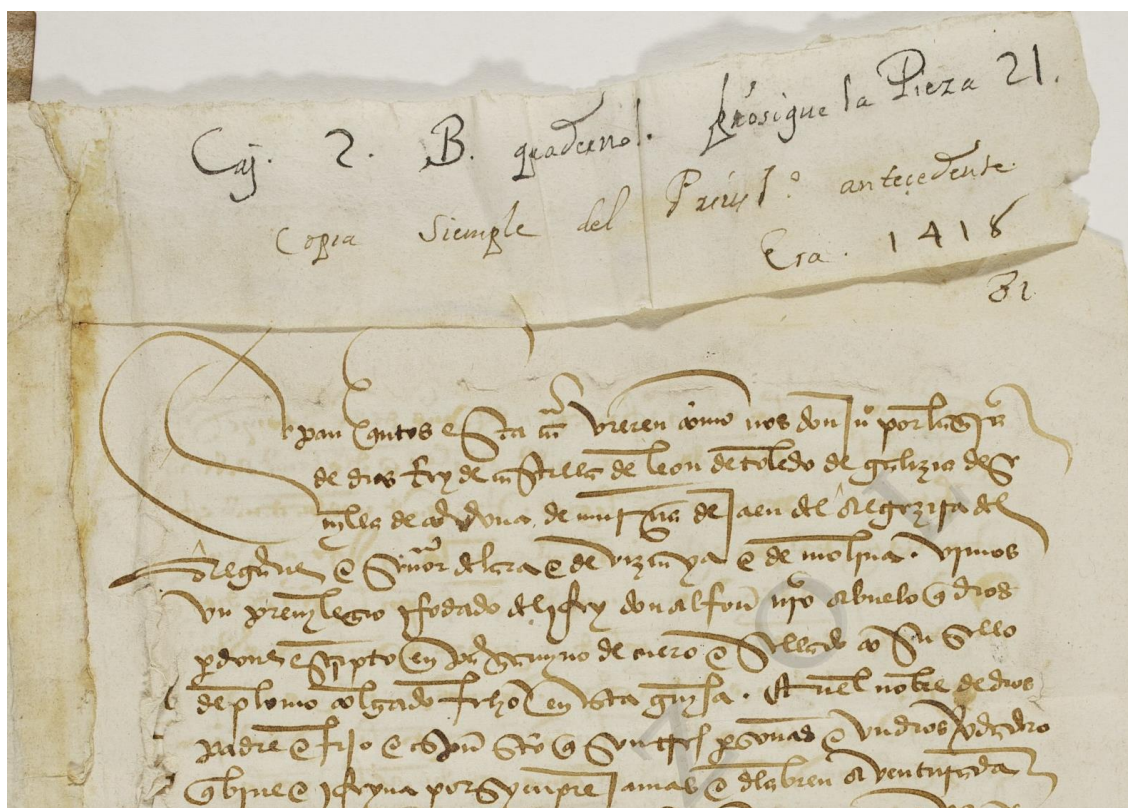 Caj. 2. B. quaderno 1. prosigue la Pieza 21.
Copia Siemple del Previl° antecedente
Era. 1418
81
Sepan quantos esta carta vieren como nos don Ju° por la gra
de dios Rey de castilla de leon de toledo de galizia de Se
villa de cordova de murcia de Jaen del algarve
e Señor de lara e de vizcaya e de molina. vimos
un previllegio rodado del rey don alfon nro abuelo q dios
perdone escripto en pargamyno de cuero e Sellado con Su Sello
de plomo colgado fecho en esta guysa. En el nonbre de dios
padre e fijo e espu Sto q Son tres personas e un dios verdadero
q bive e reyna por Syempre Jamas e